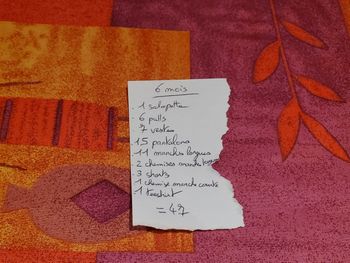 6 mois
- 1 salopette
- 6 pulls
- 7 vestes
- 15 pantalons
- 11 manches longues
- 2 chemises manches longues
- 3 shorts
- 1 chemise manche courte
- 1 teeshirt
= 47